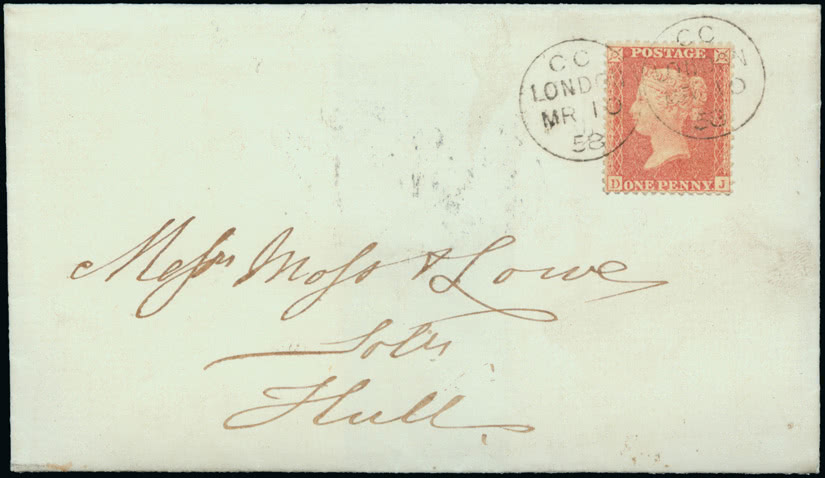 POSTAGE
D ONE PENNY J
CC
LONDO
MR 10
58
CC
ON
10
58
Messrs Moss & Lowe
Solrs
Hull